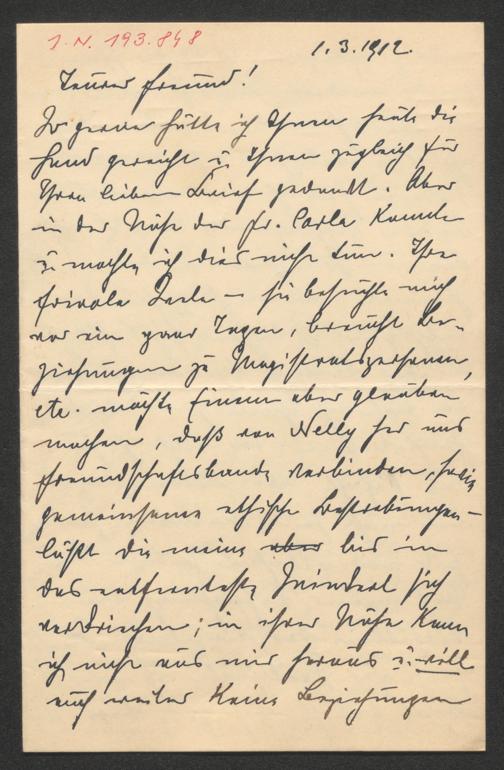 I.N. 193.848
1.3.1912.
Teurer Freund!
So gerne hätte ich Ihnen heute die
Hand gereicht u. Ihnen zugleich für
Ihren lieben Brief gedankt. Aber
in der Nähe der Fr. Carla konnte
u. mochte ich dies nicht tun. Ihre
frivole Seele — sie besuchte mich
vor ein paar Tagen, braucht Be-
ziehungen zu Magistratspersonen,
etc. möchte Einem aber glauben
machen, daß von Nelly her uns
Freundschaftsbande verbinden,
gemeinsame ethische Bestrebungen —
läßt die meine aber bis in
das entfernteste Winkerl sich
verkriechen; in ihrer Nähe kann
ich nicht aus mir heraus u. will
auch weiter keine Beziehungen